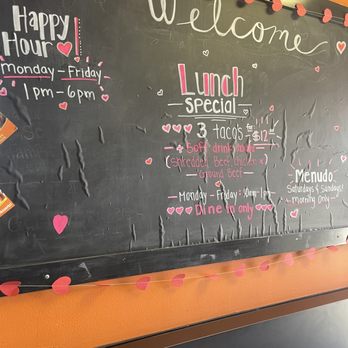 Welcome
Happy
Hour!
Monday - Friday
1pm - 6pm
Lunch
Special
3 taco's for $12
+ Soft drink
(Shredded Beef, chicken or
Ground Beef
Monday - Friday: 10am - 1pm
Dine in only
Menudo
Saturdays & Sundays!
Morning Only